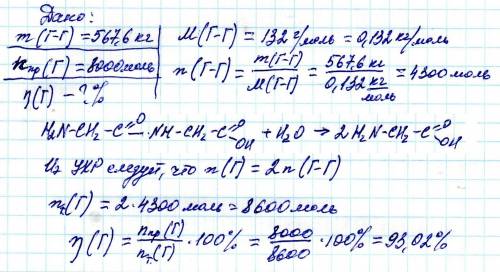 Дано:
m(Г-Г) = 567,6 кг
M(Г-Г) = 132 г/моль = 0,132 кг/моль
nпр(Г) = 8000 моль
n(Г-Г) = m(Г-Г)/M(Г-Г) = 567,6 кг/0,132 кг/моль = 4300 моль
η(Г) - ? %
H2N-CH2-C=O-NH-CH2-C=O OH + H2O → 2 H2N-CH2-C=O OH
Из УХР следует, что n(Г) = 2n(Г-Г)
nт(Г) = 2·4300 моль = 8600 моль
η(Г) = nпр(Г)/nт(Г) ·100% = 8000/8600 ·100% = 93,02%